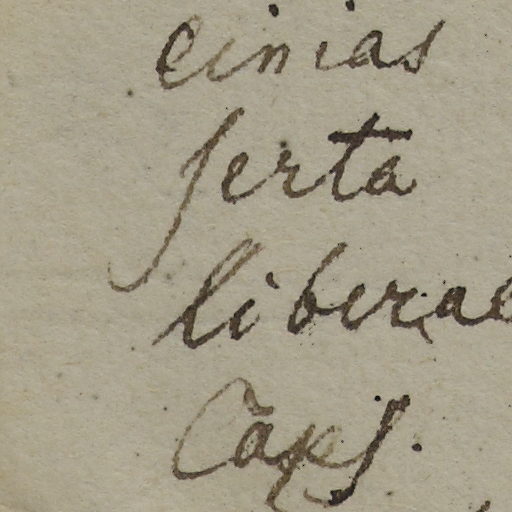 einias
serta
liberae
Caps.